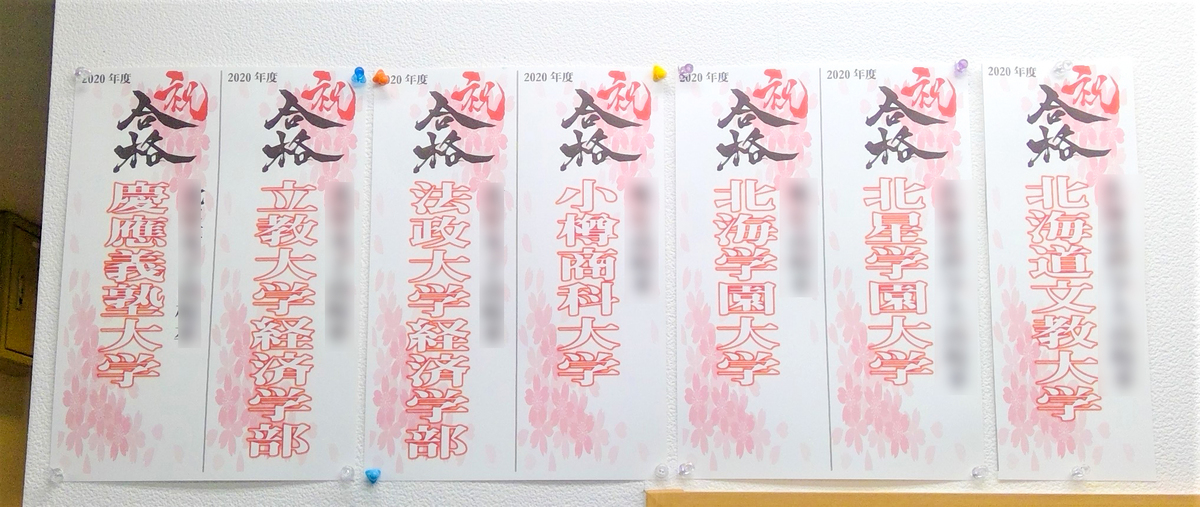 2020 年度
祝
合格
慶應義塾大学
2020 年度
祝
合格
立教大学経済学部
2020 年度
祝
合格
法政大学経済学部
2020 年度
祝
合格
小樽商科大学
2020 年度
祝
合格
北海学園大学
2020 年度
祝
合格
北星学園大学
2020 年度
祝
合格
北海道文教大学